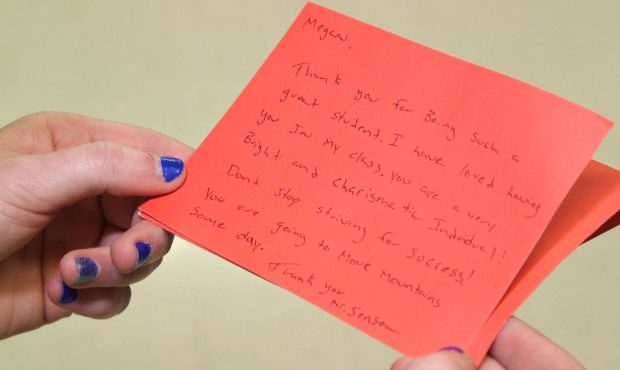 Megan,
Thank you for Being Such a
great student. I have loved having
you In my class. You are a very
Bright and Charismatic Individual!
Dont stop striving for Success!
You are going to Move Mountains
Some day.
Thank you
Mr. Jensen